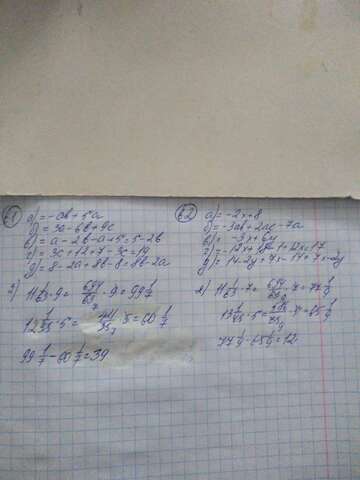 б1
а) = -ab + 5a
б) = 3a - 6b + 9c
в) = a - 2b - a + 5 = 5 - 2b
г) = 3c + 12 + 7 - 3c = 19
д) = 8 - 2a + 8b - 8 = 8b - 2a
2) 11 1/63 · 9 = 694/63 · 9 = 99 1/7
12 1/35 · 5 = 421/35 · 5 = 60 1/7
99 1/7 - 60 1/7 = 39
б2
а) = -2x + 8
б) = -3ab + 2ac - 7a
в) = -3x + 6y
д) = 14 - 2y + 7x - 14 = 7x - 2y
2) 11 1/63 · 7 = 694/63 · 7 = 77 1/9
13 1/45 · 5 = 586/45 · 5 = 65 1/9
77 1/9 - 65 1/9 = 12